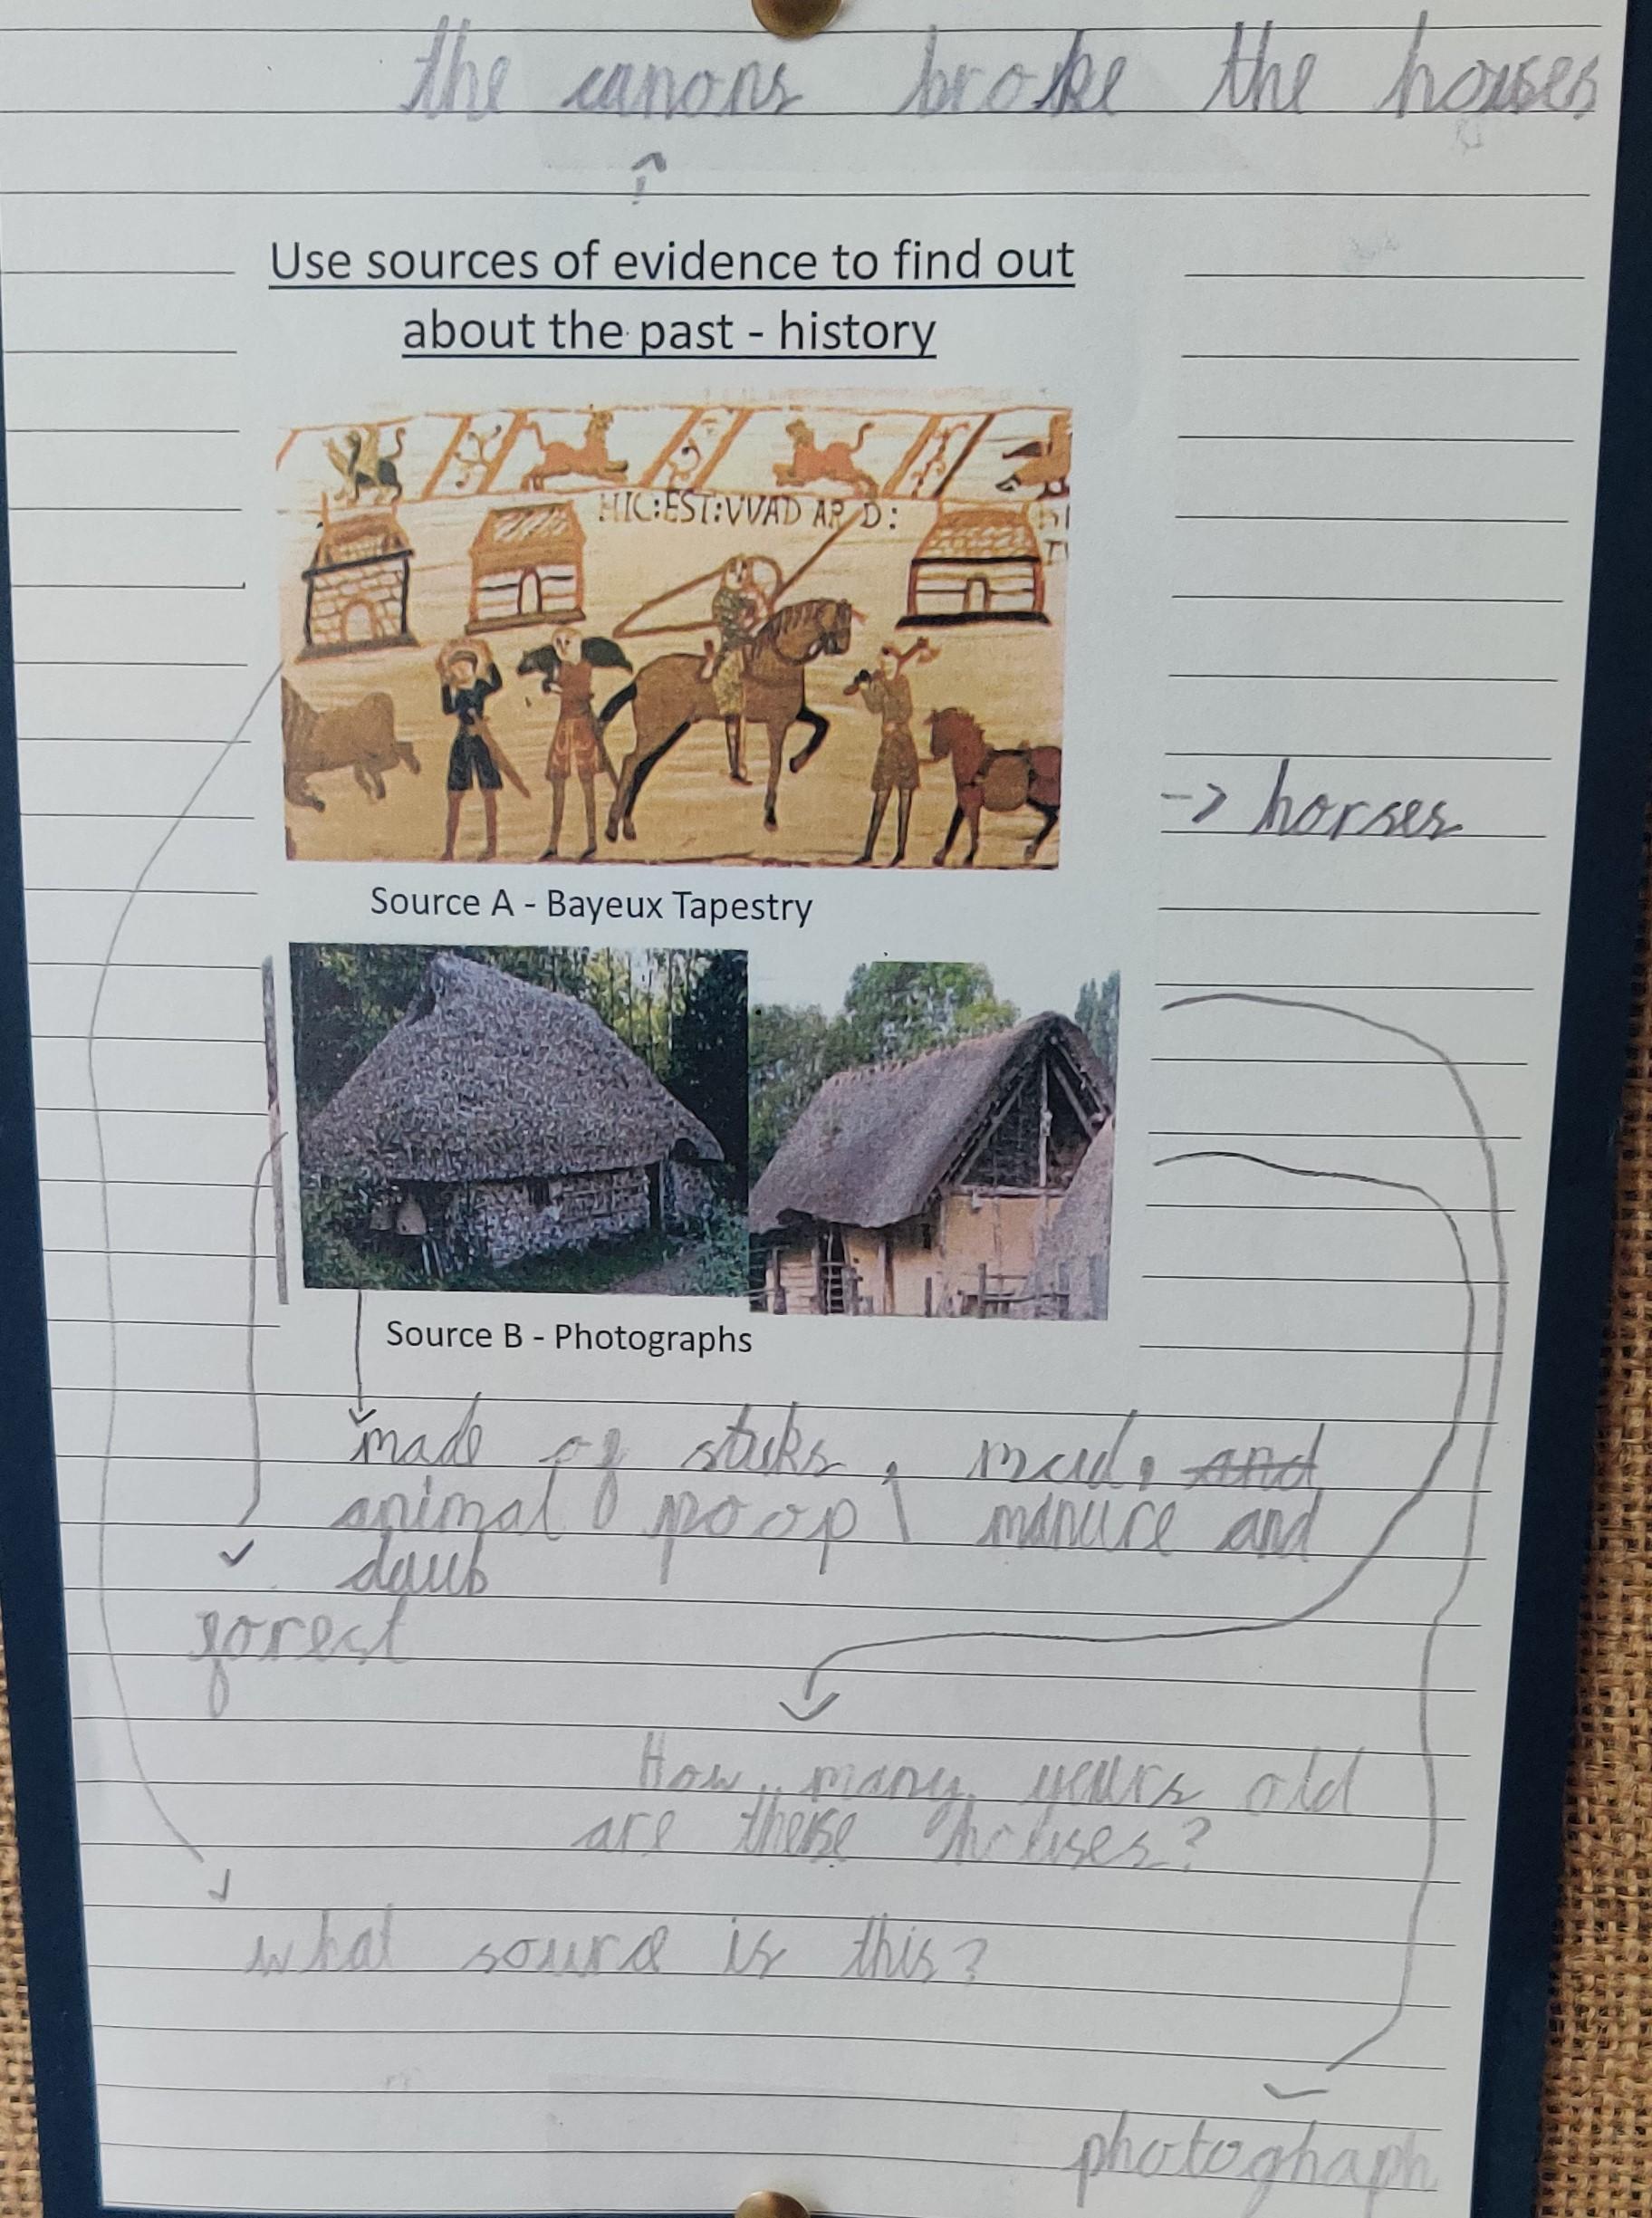 the canons broke the houses
Use sources of evidence to find out
about the past - history
HIC:EST:VVAD ARD:
→ horses
Source A - Bayeux Tapestry
Source B - Photographs
made of sticks, mud, and
animal poop \ manure and
daub
forest
How many years old
are these houses?
what source is this?
photoghaph